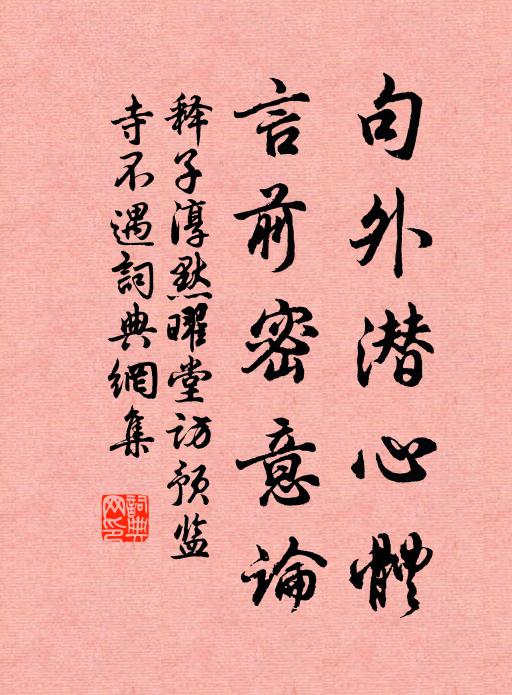 句外潜心體
言前密意論
释子淳默曜堂访预监
寺不遇詞典網集
詞典網印